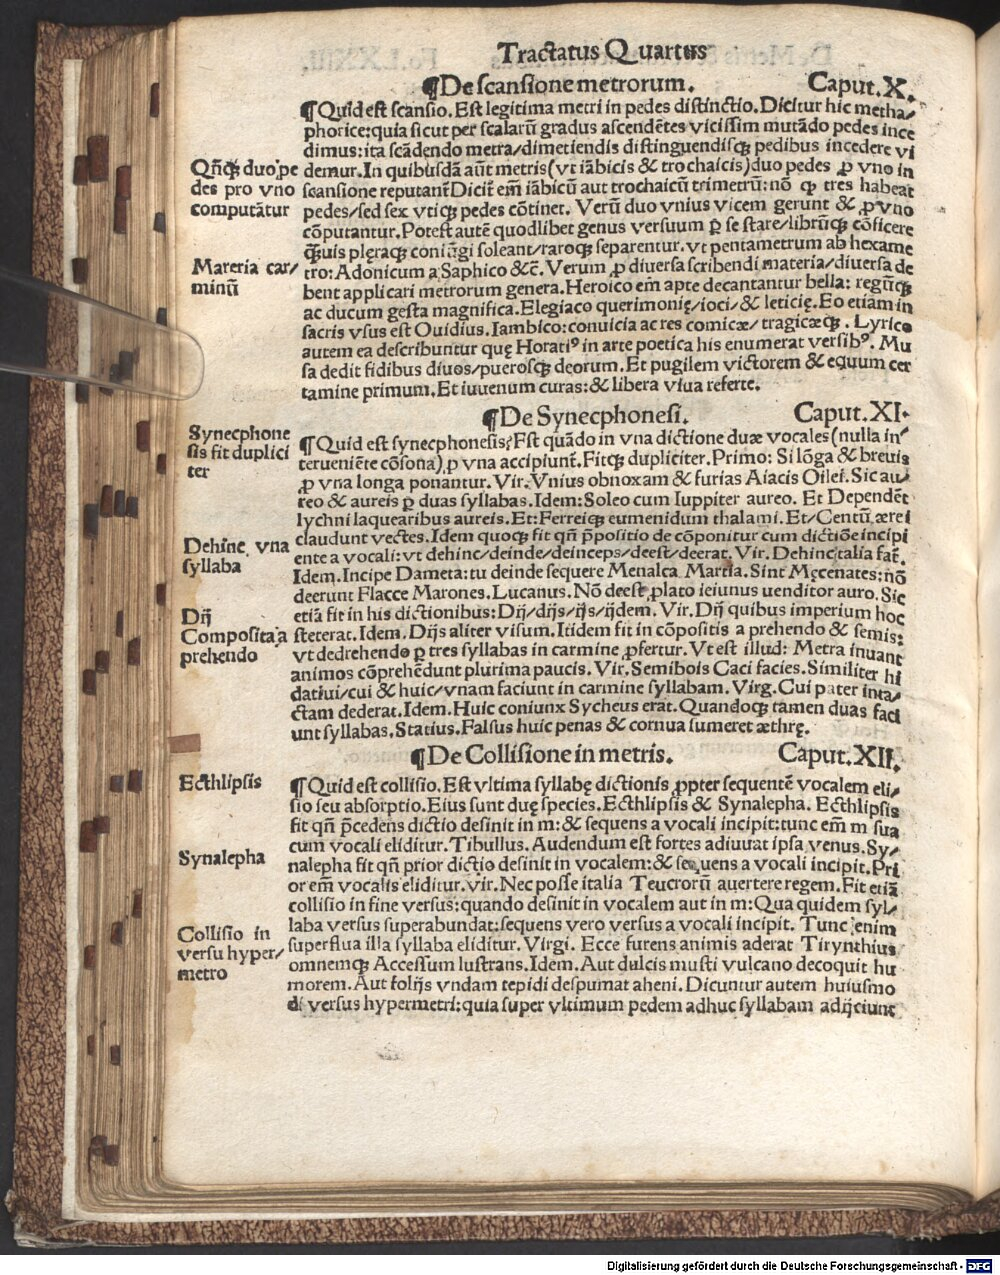 Tractatus Quartus
¶De scansione metrorum. Caput.X.
¶Quid est scansio. Est legitima metri in pedes distinctio. Dicitur hic metha/
phorice: quia sicut per scalarũ gradus ascendẽtes vicissim mutãdo pedes ince
dimus: ita scãdendo metra/dimetiendis distinguendisq̃ pedibus incedere vi
Qñq̃ duo pe
des pro vno
computãtur
demur. In quibusdã aũt metris (vt iãbicis & trochaicis) duo pedes ꝓ vno in
scansione reputant̃ Dicit̃ em̃ iãbicũ aut trochaicũ trimetrũ: nõ ꝙ tres habeat
pedes/sed sex vtiq̃ pedes cõtinet. Verũ duo vnius vicem gerunt & ꝓ vno
cõputantur. Potest autẽ quodlibet genus versuum ꝑ se stare/librũq̃ cõficere
q̃uis plęraq̃ coniũgi soleant/raroq̃ separentur. vt pentametrum ab hexame
Materia car/
minũ
tro: Adonicum a Saphico &c̃. Verum ꝓ diversa scribendi materia/diversa de
bent applicari metrorum genera. Heroico em̃ apte decantantur bella: regũq̃
ac ducum gesta magnifica. Elegiaco querimonię/ioci/& leticię. Eo etiam in
sacris vsus est Ouidius. Iambico: conuicia ac res comicæ/tragicæq̃. Lyrico
autem ea describuntur quę Horatiꝰ in arte poetica his enumerat versibꝰ. Mu
sa dedit fidibus diuos/puerosq̃ deorum. Et pugilem victorem & equum cer
tamine primum. Et iuuenum curas: & libera vina referre.
¶De Synecphonesi. Caput.XI.
Synecphone
sis fit duplici
ter
¶Quid est synecphonesis? Est quãdo in vna dictione duæ vocales (nulla in/
terueniẽte cõsona) ꝓ vna accipiunt̃. Fitq̃ dupliciter. Primo: Si lõga & brevis
ꝓ vna longa ponantur. Vir. Vnius obnoxam & furias Aiacis Oilei. Sic au/
reo & aureis ꝑ duas syllabas. Idem: Soleo cum Iuppiter aureo. Et Dependẽt
lychni laquearibus aureis. Et: Ferreiq̃ eumenidum thalami. Et/Centũ ærei
claudunt vectes. Idem quoq̃ fit qñ p̃positio de cõponitur cum dictiõe incipi
Dehinc vna
syllaba
ente a vocali: vt dehinc/deinde/deinceps/deest/deerat. Vir. Dehinc talia fat̃.
Idem. Incipe Dameta: tu deinde sequere Menalca. Martia. Sint Męcenates: nõ
deerunt Flacce Marones. Lucanus. Nõ deest ꝓlato ieiunus uenditor auro. Sic
Dij
Composita a
prehendo
etiã fit in his dictionibus: Dij/dijs/ijs/ijdem. Vir. Dij quibus imperium hoc
steterat. Idem. Dijs aliter visum. Itidem fit in cõpositis a prehendo & semis:
vt dedrehendo ꝑ tres syllabas in carmine ꝓfertur. Vt est illud: Metra iuuant
animos cõprehẽdunt plurima paucis. Vir. Semibois Caci facies. Similiter hi
datiui/cui & huic/vnam faciunt in carmine syllabam. Virg. Cui pater inta/
ctam dederat. Idem. Huic coniunx Sycheus erat. Quandoq̃ tamen duas faci
unt syllabas. Statius. Falsus huic penas & cornua sumeret æthrę.
¶De Collisione in metris. Caput.XII.
Ecthlipsis
¶Quid est collisio. Est vltima syllabę dictionis ꝓpter sequentẽ vocalem eli/
sio seu absorptio. Eius sunt duę species. Ecthlipsis & Synalepha. Ecthlipsis
fit qñ p̃cedens dictio desinit in m: & sequens a vocali incipit: tunc em̃ m sua
cum vocali eliditur. Tibullus. Audendum est fortes adiuuat ipsa venus. Sy/
Synalepha
nalepha fit qñ prior dictio desinit in vocalem: & sequens a vocali incipit. Pri
or em̃ vocalis eliditur. vir. Nec posse italia Teucrorũ auertere regem. Fit etiã
collisio in fine versus: quando desinit in vocalem aut in m: Qua quidem syl/
laba versus superabundat: sequens vero versus a vocali incipit. Tunc enim
Collisio in
versu hyper/
metro
superflua illa syllaba eliditur. Virgi. Ecce furens animis aderat Tirynthius
omnemq̃ Accessum lustrans. Idem. Aut dulcis musti vulcano decoquit hu
morem. Aut folijs vndam tepidi despumat aheni. Dicuntur autem huiusmo
di versus hypermetri: quia super vltimum pedem adhuc syllabam adijciunt
Digitalisierung gefördert durch die Deutsche Forschungsgemeinschaft - DFG